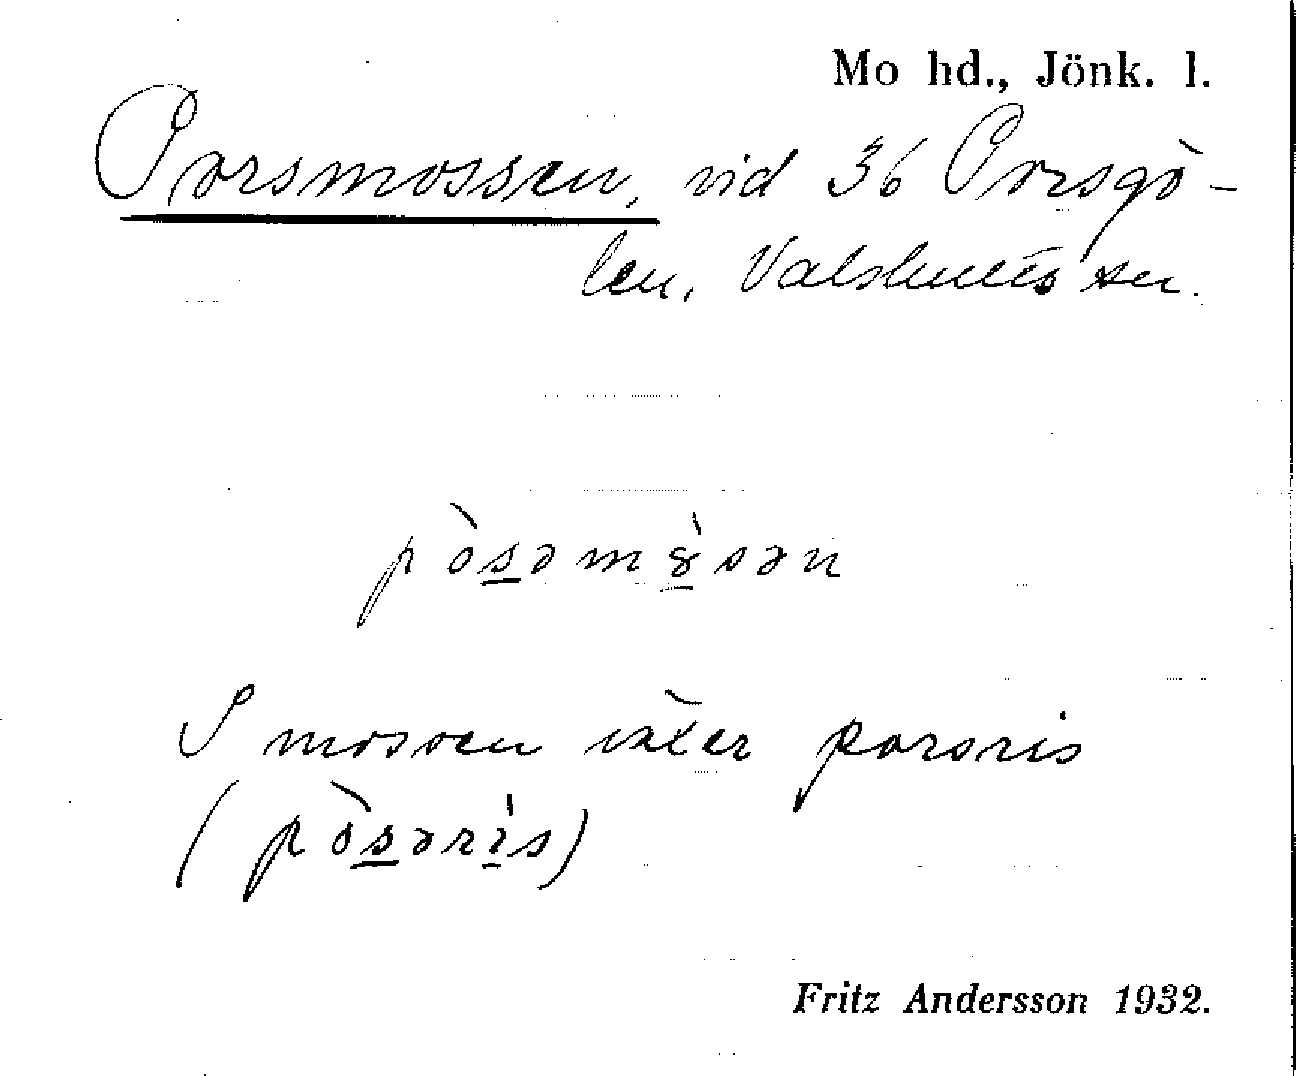 Mo hd., Jönk. l.
Porsmossen, vid 36 Porsgö-
len, Valshults sn.
pòsəm̀ȣsən
I mossen växer porsris
(pòsərìs)
Fritz Andersson 1932.